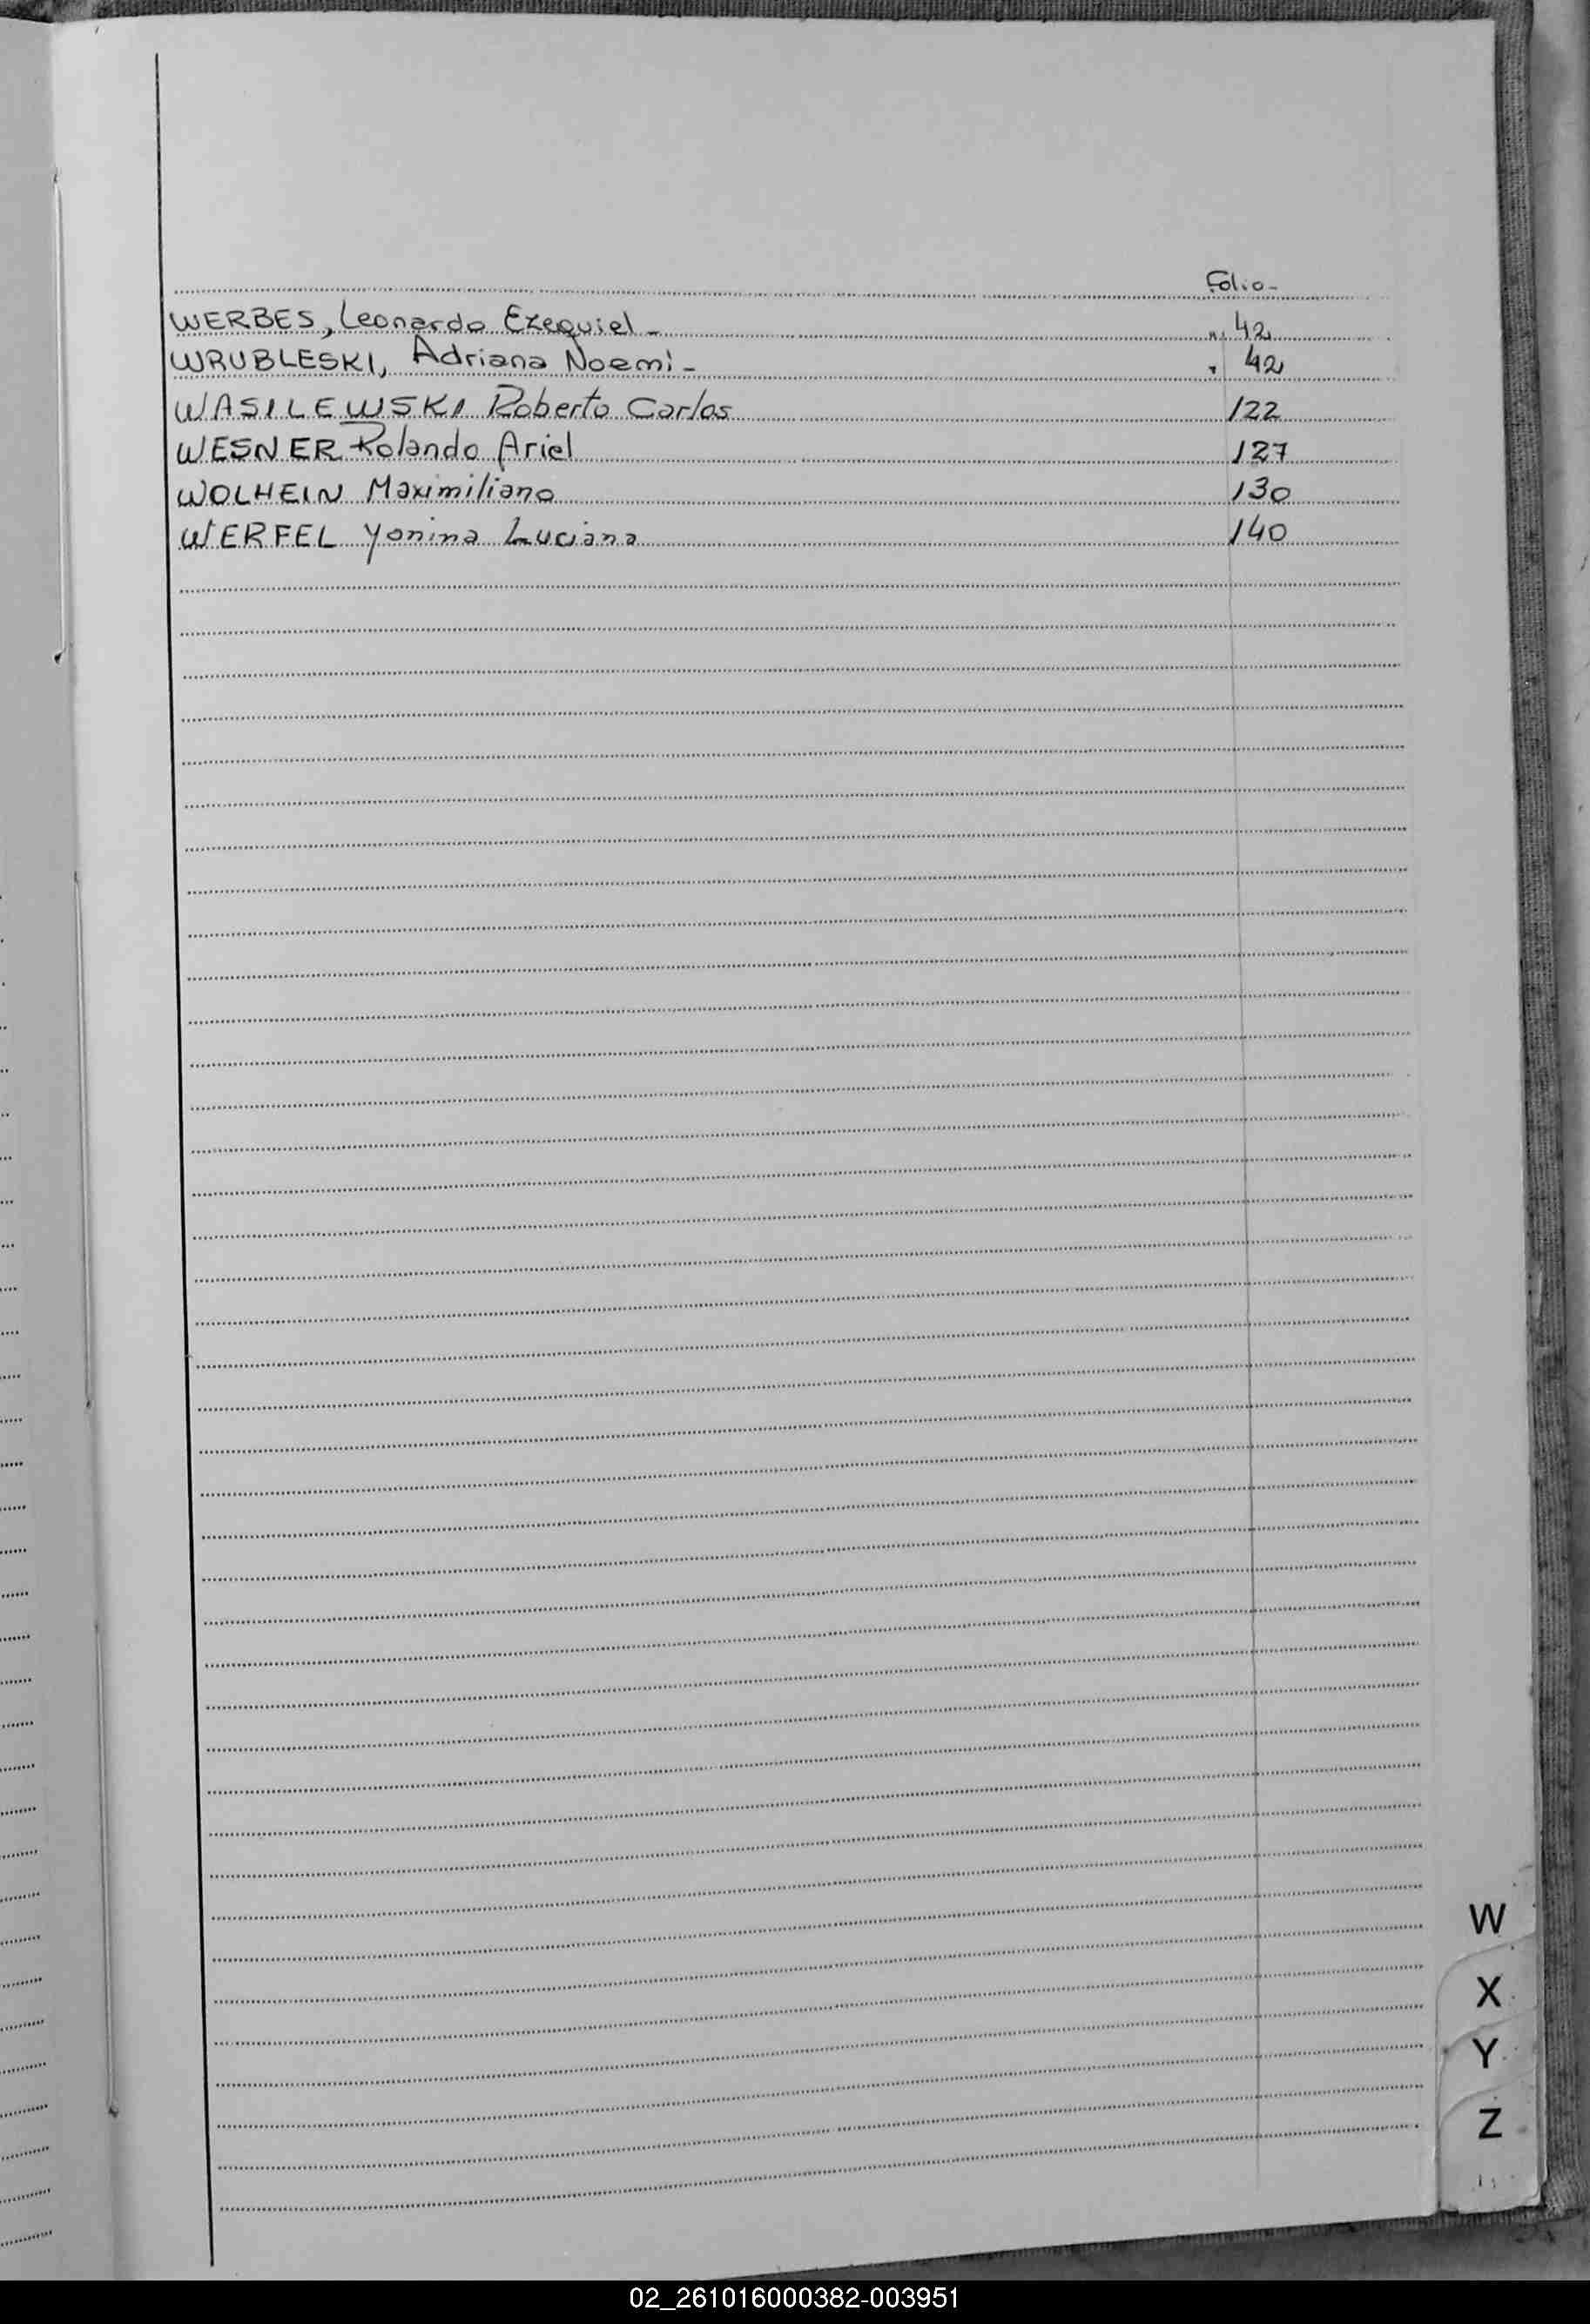 Folio-
WERBES, Leonardo Ezequiel - " 42
WRUBLESKI, Adriana Noemi - " 42
WASILEWSKI Roberto Carlos 122
WESNER Rolando Ariel 127
WOLHEIN Maximiliano 130
WERFEL Yanina Luciana 140
W
X
Y
Z
02_261016000382-003951